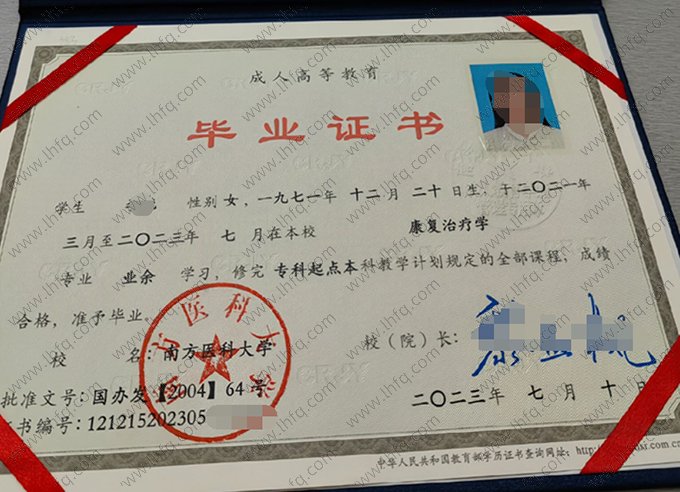 成人高等教育
毕业证书
学生 性别 女，一九七一年 十二月 二十日生，于二〇二一年
三月至二〇二三年 七月在本校 康复治疗学
专业 业余 学习，修完 专科起点本科教学计划规定的全部课程，成绩
合格，准予毕业。
校 名：南方医科大学
校（院）长：
批准文号：国办发【2004】64号
二〇二三年 七月 十日
证书编号：121215202305
中华人民共和国教育部学历证书查询网址：http:
www.lhfq.com